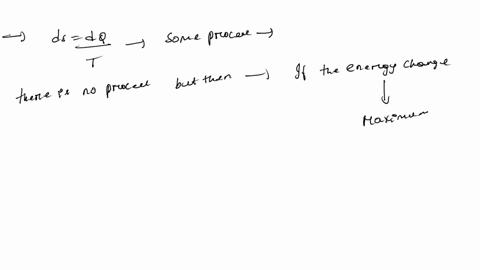 → ds = dQ/T → some process →
there is no process but then → If the energy change
↓
Maximum